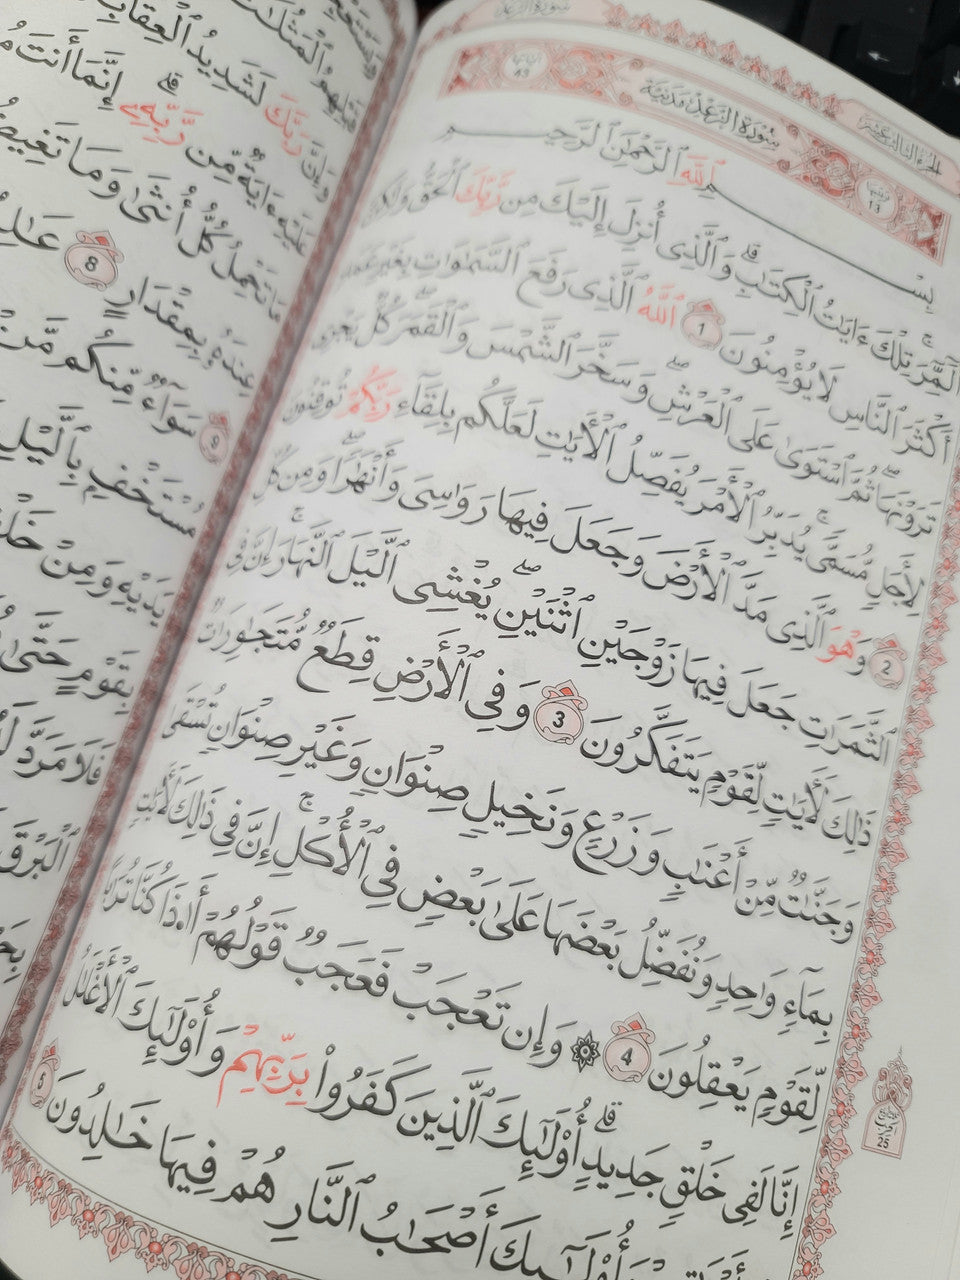 سورة الرعد
الجزء الثالث عشر
آياتها 43
سُورَةُ الرَّعْدِ مَدَنِيَّة
رقمها 13
بِسْمِ ٱللَّهِ ٱلرَّحْمَٰنِ ٱلرَّحِيمِ
الٓمٓر تِلْكَ ءَايَٰتُ ٱلْكِتَٰبِ وَٱلَّذِىٓ أُنزِلَ إِلَيْكَ مِن رَّبِّكَ ٱلْحَقُّ وَلَٰكِنَّ
أَكْثَرَ ٱلنَّاسِ لَا يُؤْمِنُونَ 1 ٱللَّهُ ٱلَّذِى رَفَعَ ٱلسَّمَٰوَٰتِ بِغَيْرِ عَمَدٍ
تَرَوْنَهَا ثُمَّ ٱسْتَوَىٰ عَلَى ٱلْعَرْشِ وَسَخَّرَ ٱلشَّمْسَ وَٱلْقَمَرَ كُلٌّ يَجْرِى
لِأَجَلٍ مُّسَمًّى يُدَبِّرُ ٱلْأَمْرَ يُفَصِّلُ ٱلْءَايَٰتِ لَعَلَّكُم بِلِقَآءِ رَبِّكُمْ تُوقِنُونَ
2 وَهُوَ ٱلَّذِى مَدَّ ٱلْأَرْضَ وَجَعَلَ فِيهَا رَوَٰسِىَ وَأَنْهَٰرًا وَمِن كُلِّ
ٱلثَّمَرَٰتِ جَعَلَ فِيهَا زَوْجَيْنِ ٱثْنَيْنِ يُغْشِى ٱلَّيْلَ ٱلنَّهَارَ إِنَّ فِى
ذَٰلِكَ لَءَايَٰتٍ لِّقَوْمٍ يَتَفَكَّرُونَ 3 وَفِى ٱلْأَرْضِ قِطَعٌ مُّتَجَٰوِرَٰتٌ
وَجَنَّٰتٌ مِّنْ أَعْنَٰبٍ وَزَرْعٌ وَنَخِيلٌ صِنْوَانٌ وَغَيْرُ صِنْوَانٍ تُسْقَىٰ
بِمَآءٍ وَٰحِدٍ وَنُفَضِّلُ بَعْضَهَا عَلَىٰ بَعْضٍ فِى ٱلْأُكُلِ إِنَّ فِى ذَٰلِكَ لَءَايَٰتٍ
لِّقَوْمٍ يَعْقِلُونَ 4 ۞ وَإِن تَعْجَبْ فَعَجَبٌ قَوْلُهُمْ أَءِذَا كُنَّا تُرَٰبًا
أَءِنَّا لَفِى خَلْقٍ جَدِيدٍ أُو۟لَٰٓئِكَ ٱلَّذِينَ كَفَرُوا۟ بِرَبِّهِمْ وَأُو۟لَٰٓئِكَ ٱلْأَغْلَٰلُ
وَأُو۟لَٰٓئِكَ أَصْحَٰبُ ٱلنَّارِ هُمْ فِيهَا خَٰلِدُونَ 5
25
ٱلْمَثُلَٰتُ
وَإِنَّ رَبَّكَ لَشَدِيدُ ٱلْعِقَابِ
عَلَيْهِ ءَايَةٌ مِّن رَّبِّهِۦٓ إِنَّمَآ أَنتَ
مَا تَحْمِلُ كُلُّ أُنثَىٰ وَمَا تَغِيضُ
عِندَهُۥ بِمِقْدَارٍ 8 عَٰلِمُ
9 سَوَآءٌ مِّنكُم مَّنْ
مُسْتَخْفٍۭ بِٱلَّيْلِ
يَدَيْهِ وَمِنْ خَلْفِهِۦ
بِقَوْمٍ حَتَّىٰ
فَلَا مَرَدَّ لَهُۥ
ٱلْبَرْقَ